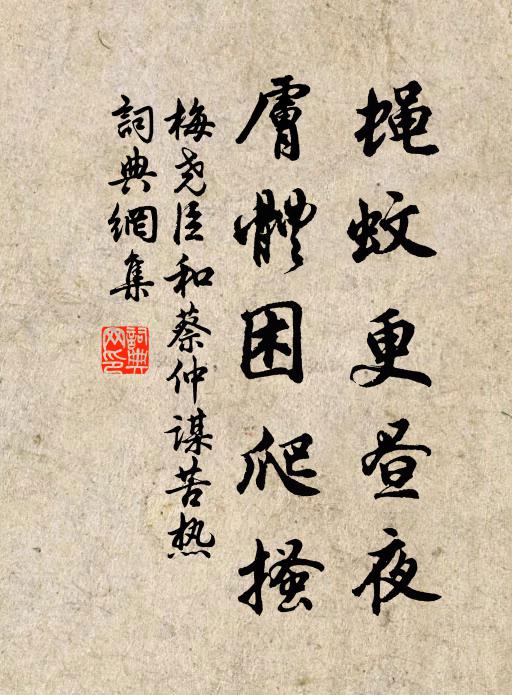 蝇蚊更昼夜
膚體困爬搔
梅尧臣和蔡仲谋苦热
詞典網集
詞典
网印